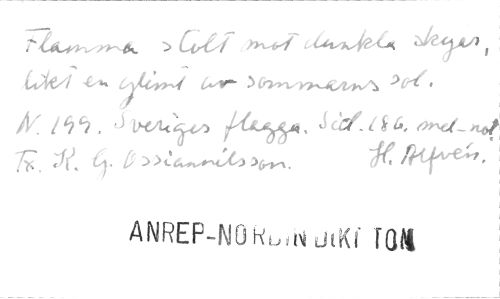 Flamma stolt mot dunkla skyar,
likt en glimt av sommarens sol.
N. 199. Sveriges flagga. Sid. 186. mel.-not.
Tx. K. G. Ossiannilsson. H. Alfvén.
ANREP-NORDIN DIKT TON